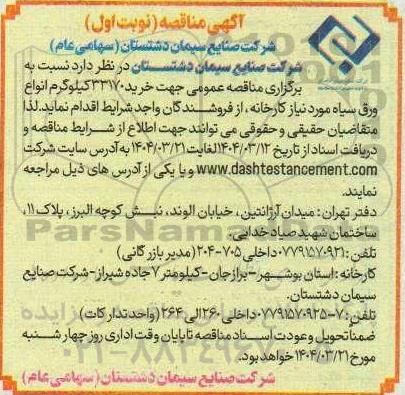 آگهی مناقصه (نوبت اول)
شرکت صنایع سیمان دشتستان (سهامی عام)
شرکت صنایع سیمان دشتستان در نظر دارد نسبت به
برگزاری مناقصه عمومی جهت خرید ۳۳۱۷۰ کیلوگرم انواع
ورق سیاه مورد نیاز کارخانه، از فروشندگان واجد شرایط اقدام نماید. لذا
متقاضیان حقیقی و حقوقی می توانند جهت اطلاع از شرایط مناقصه و
دریافت اسناد از تاریخ ۱۴۰۴/۰۳/۱۲ لغایت ۱۴۰۴/۰۳/۲۱ به آدرس سایت شرکت
www.dashtestancement.com و یا یکی از آدرس های ذیل مراجعه
نمایند.
دفتر تهران: میدان آرژانتین، خیابان الوند، نبش کوچه البرز، پلاک ۱۱،
ساختمان شهید صیاد خدایی.
تلفن: ۰۷۷۹۱۵۷۰۹۲۱ داخلی ۷۰۵-۲۰۴ (مدیر بازرگانی)
کارخانه: استان بوشهر - برازجان - کیلومتر ۷ جاده شیراز - شرکت صنایع
سیمان دشتستان.
تلفن: ۷-۰۷۷۹۱۵۷۰۹۲۵ داخلی ۲۶۰ الی ۲۶۴ (واحد تدارکات)
ضمناً تحویل و عودت اسناد مناقصه تا پایان وقت اداری روز چهارشنبه
مورخ ۱۴۰۴/۰۳/۲۱ خواهد بود.
شرکت صنایع سیمان دشتستان (سهامی عام)